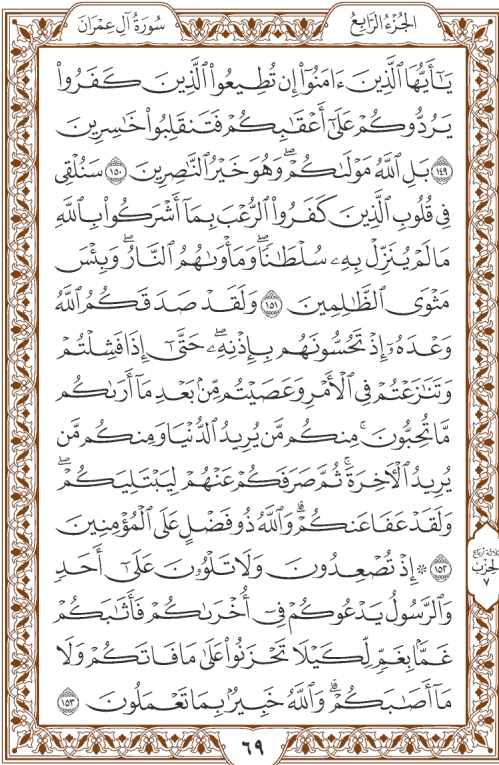 الجُزْءُ الرَّابِعُ
سُورَةُ آلِ عِمْرَانَ
يَٰٓأَيُّهَا ٱلَّذِينَ ءَامَنُوٓا۟ إِن تُطِيعُوا۟ ٱلَّذِينَ كَفَرُوا۟
يَرُدُّوكُمْ عَلَىٰٓ أَعْقَٰبِكُمْ فَتَنقَلِبُوا۟ خَٰسِرِينَ
١٤٩ بَلِ ٱللَّهُ مَوْلَىٰكُمْ ۖ وَهُوَ خَيْرُ ٱلنَّٰصِرِينَ ١٥٠ سَنُلْقِى
فِى قُلُوبِ ٱلَّذِينَ كَفَرُوا۟ ٱلرُّعْبَ بِمَآ أَشْرَكُوا۟ بِٱللَّهِ
مَا لَمْ يُنَزِّلْ بِهِۦ سُلْطَٰنًا ۖ وَمَأْوَىٰهُمُ ٱلنَّارُ ۚ وَبِئْسَ
مَثْوَى ٱلظَّٰلِمِينَ ١٥١ وَلَقَدْ صَدَقَكُمُ ٱللَّهُ
وَعْدَهُۥٓ إِذْ تَحُسُّونَهُم بِإِذْنِهِۦ ۖ حَتَّىٰٓ إِذَا فَشِلْتُمْ
وَتَنَٰزَعْتُمْ فِى ٱلْأَمْرِ وَعَصَيْتُم مِّنۢ بَعْدِ مَآ أَرَىٰكُم
مَّا تُحِبُّونَ ۚ مِنكُم مَّن يُرِيدُ ٱلدُّنْيَا وَمِنكُم مَّن
يُرِيدُ ٱلْـَٔاخِرَةَ ۚ ثُمَّ صَرَفَكُمْ عَنْهُمْ لِيَبْتَلِيَكُمْ ۖ
وَلَقَدْ عَفَا عَنكُمْ ۗ وَٱللَّهُ ذُو فَضْلٍ عَلَى ٱلْمُؤْمِنِينَ
١٥٢ ۞ إِذْ تُصْعِدُونَ وَلَا تَلْوُۥنَ عَلَىٰٓ أَحَدٍ
وَٱلرَّسُولُ يَدْعُوكُمْ فِىٓ أُخْرَىٰكُمْ فَأَثَٰبَكُمْ
غَمًّۢا بِغَمٍّ لِّكَيْلَا تَحْزَنُوا۟ عَلَىٰ مَا فَاتَكُمْ وَلَا
مَآ أَصَٰبَكُمْ ۗ وَٱللَّهُ خَبِيرٌۢ بِمَا تَعْمَلُونَ ١٥٣
ثلاثة أرباع
الحزب
٧
٦٩